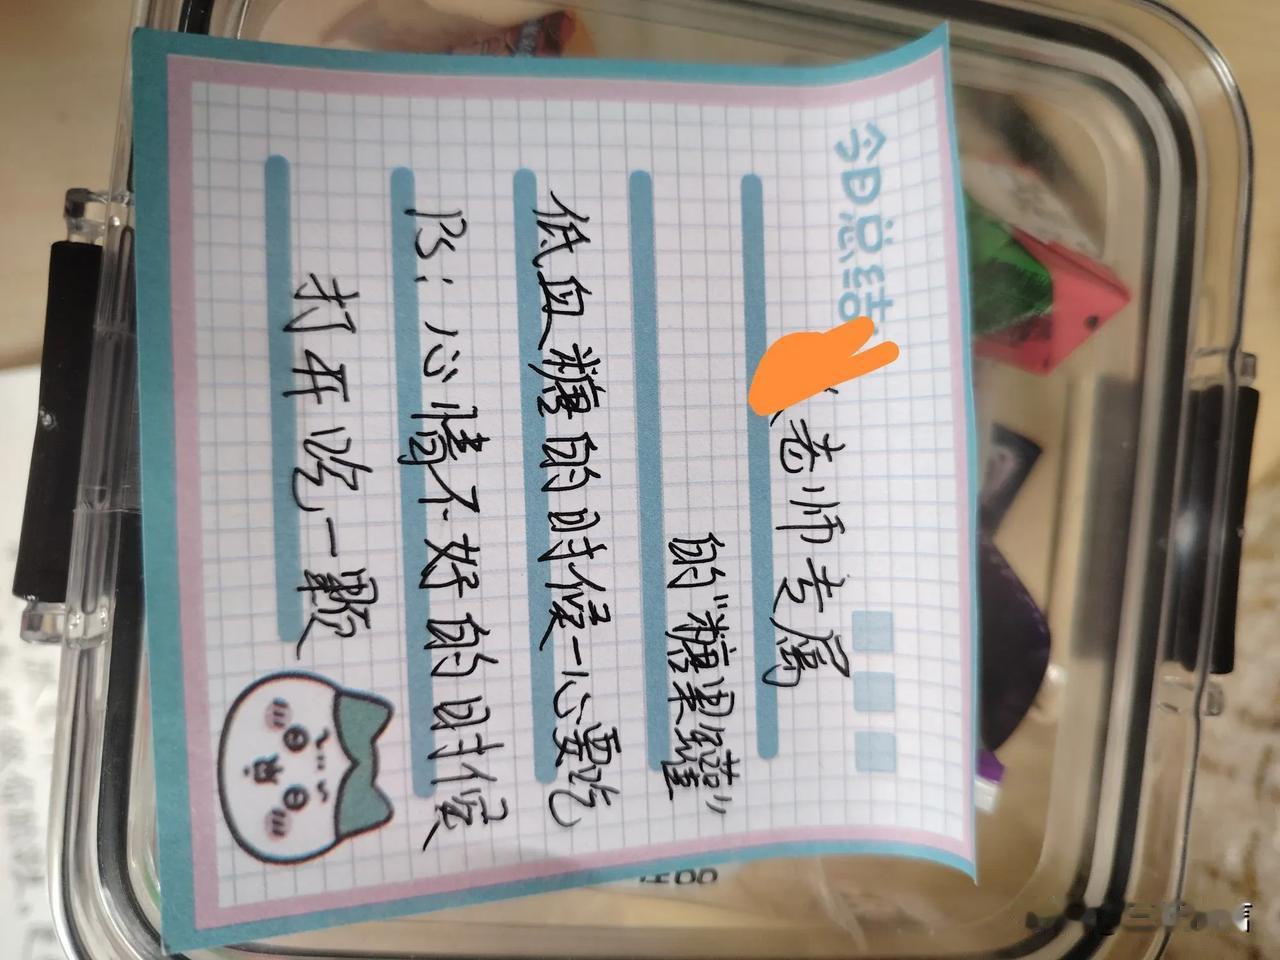 今日总结
老师专属
的“糖果罐”
低血糖的时候一心要吃
Ps：心情不好的时候
打开吃一颗